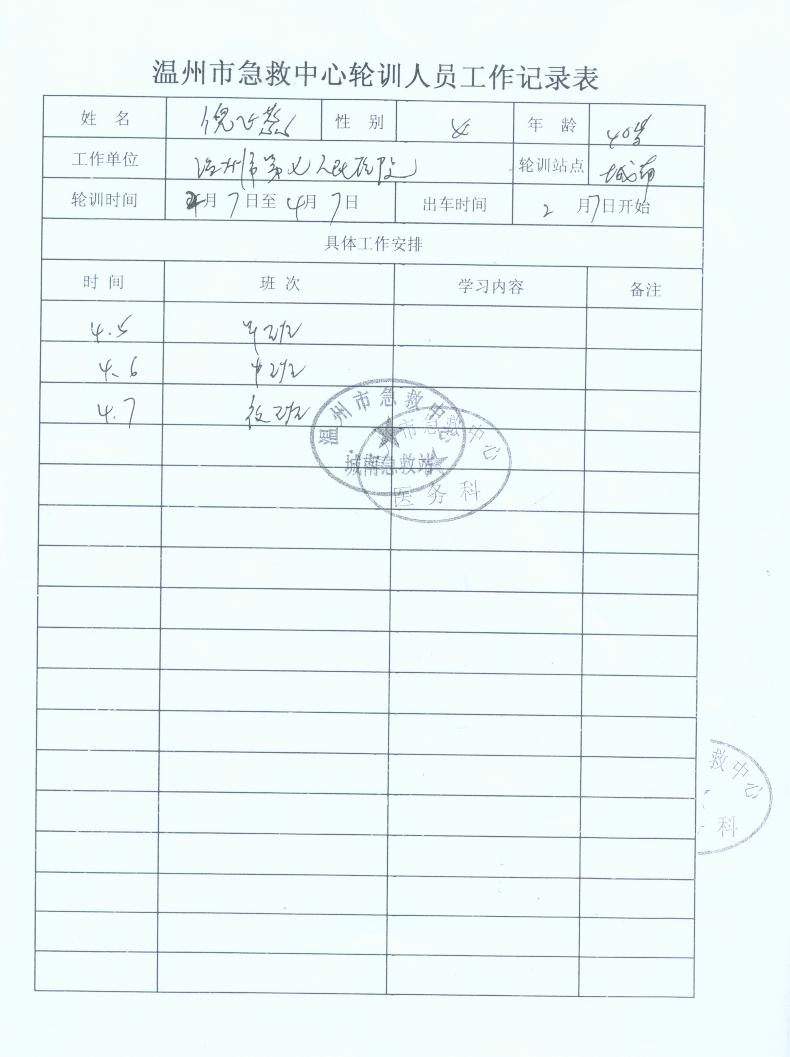 温州市急救中心轮训人员工作记录表
姓 名 倪 性 别 女 年 龄 40岁
工作单位 温州市第七人民医院 轮训站点 城南
轮训时间 2月7日至4月7日 出车时间 2月7日开始
具体工作安排
时 间 班 次 学习内容 备注
4.5 早班
4.6 中班
4.7 夜班
温州市急救中心
城南急救站
市急救中心
医务科
救中心
科